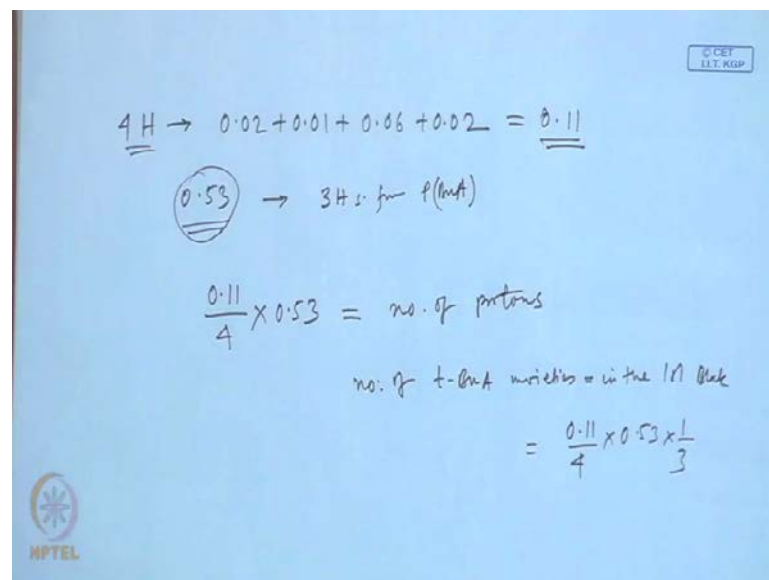 © CET
I.I.T. KGP
4 H → 0.02 + 0.01 + 0.06 + 0.02 = 0.11
0.53 → 3H s. for P(BuA)
0.11/4 × 0.53 = no. of protons
no. of t-BuA moieties = in the 1st Block
= 0.11/4 × 0.53 × 1/3
NPTEL